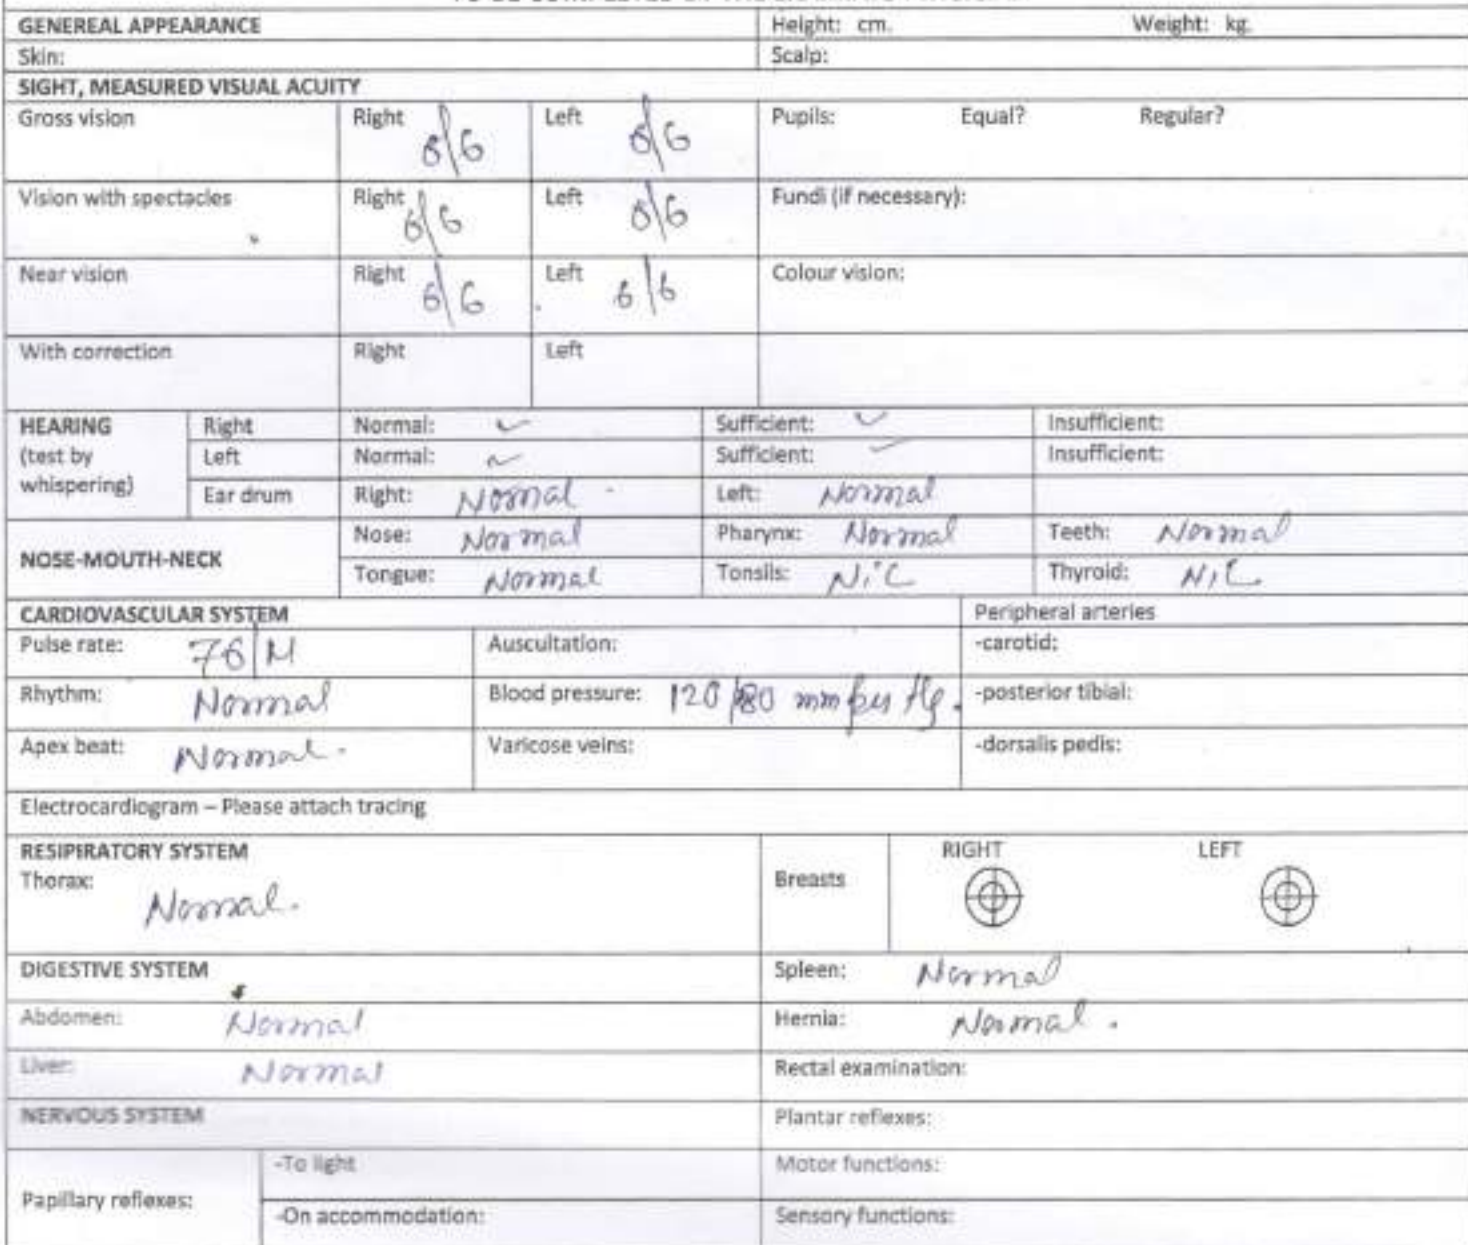 GENEREAL APPEARANCE Height: cm. Weight: kg.
Skin: Scalp:
SIGHT, MEASURED VISUAL ACUITY
Gross vision Right 6/6 Left 6/6 Pupils: Equal? Regular?
Vision with spectacles Right 6/6 Left 6/6 Fundi (if necessary):
Near vision Right 6/6 Left 6/6 Colour vision:
With correction Right Left
HEARING Right Normal: ✓ Sufficient: ✓ Insufficient:
(test by Left Normal: ✓ Sufficient: ✓ Insufficient:
whispering) Ear drum Right: Normal Left: Normal
NOSE-MOUTH-NECK Nose: Normal Pharynx: Normal Teeth: Normal
Tongue: Normal Tonsils: N/C Thyroid: N/C
CARDIOVASCULAR SYSTEM Peripheral arteries
Pulse rate: 76/M Auscultation: -carotid:
Rhythm: Normal Blood pressure: 120/80 mm per Hg. -posterior tibial:
Apex beat: Normal. Varicose veins: -dorsalis pedis:
Electrocardiogram – Please attach tracing
RESIPIRATORY SYSTEM RIGHT LEFT
Thorax: Normal. Breasts
DIGESTIVE SYSTEM Spleen: Normal
Abdomen: Normal Hernia: Normal.
Liver: Normal Rectal examination:
NERVOUS SYSTEM Plantar reflexes:
Papillary reflexes: -To light Motor functions:
-On accommodation: Sensory functions: